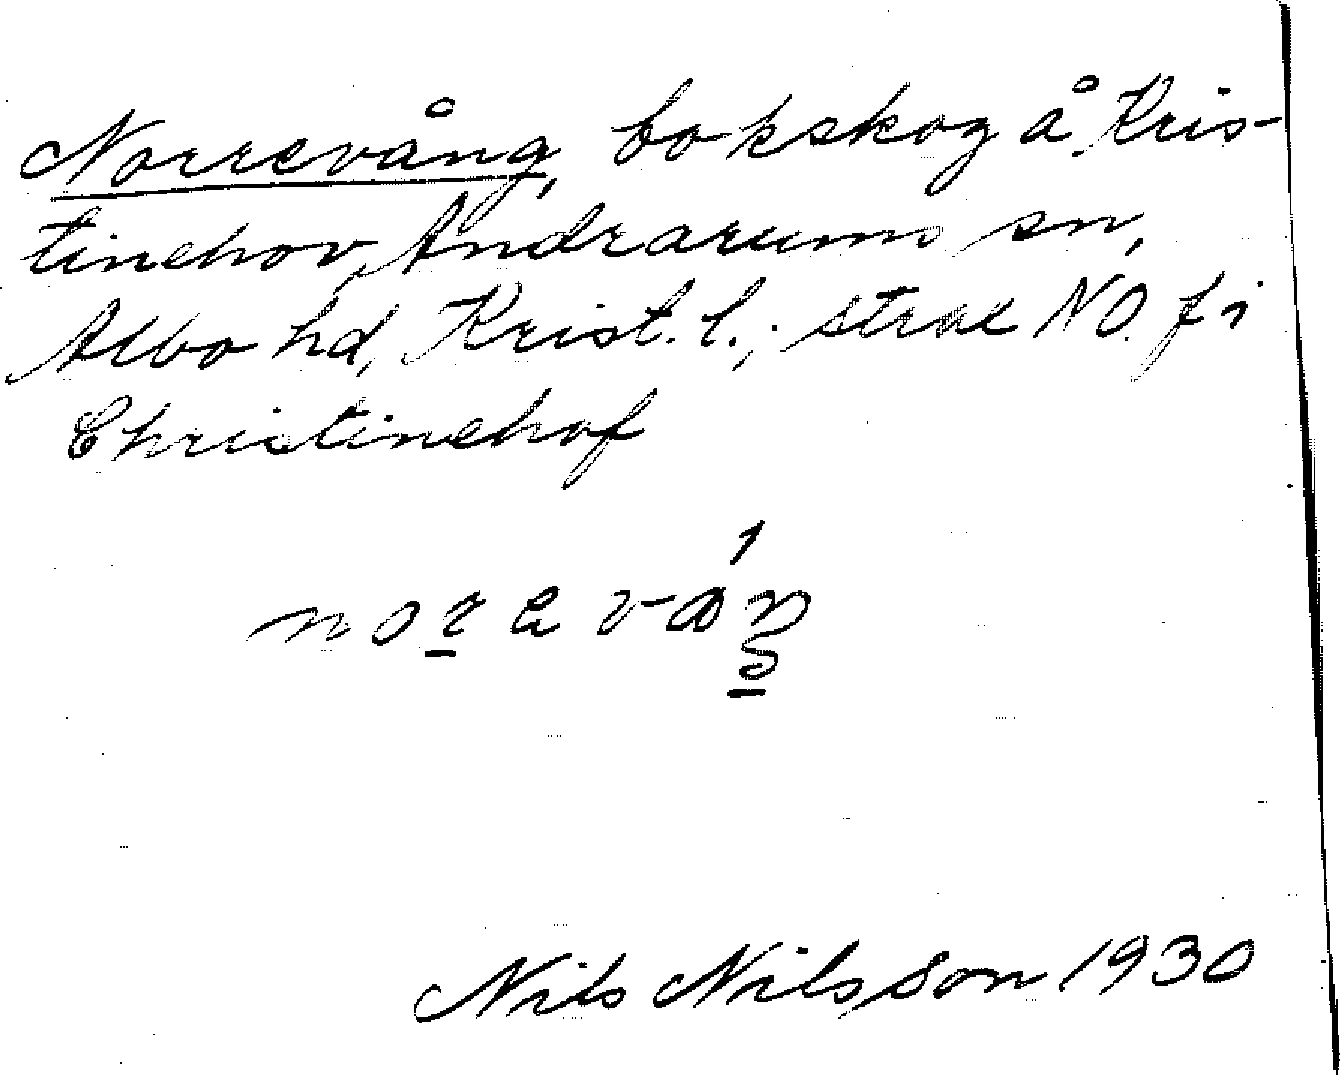 Norrevång, bokskog å Kris-
tinehov, Andrarums sn,
Albo hd, Krist. l.; strax NO. fr
Christinehof
Nils Nilsson 1930